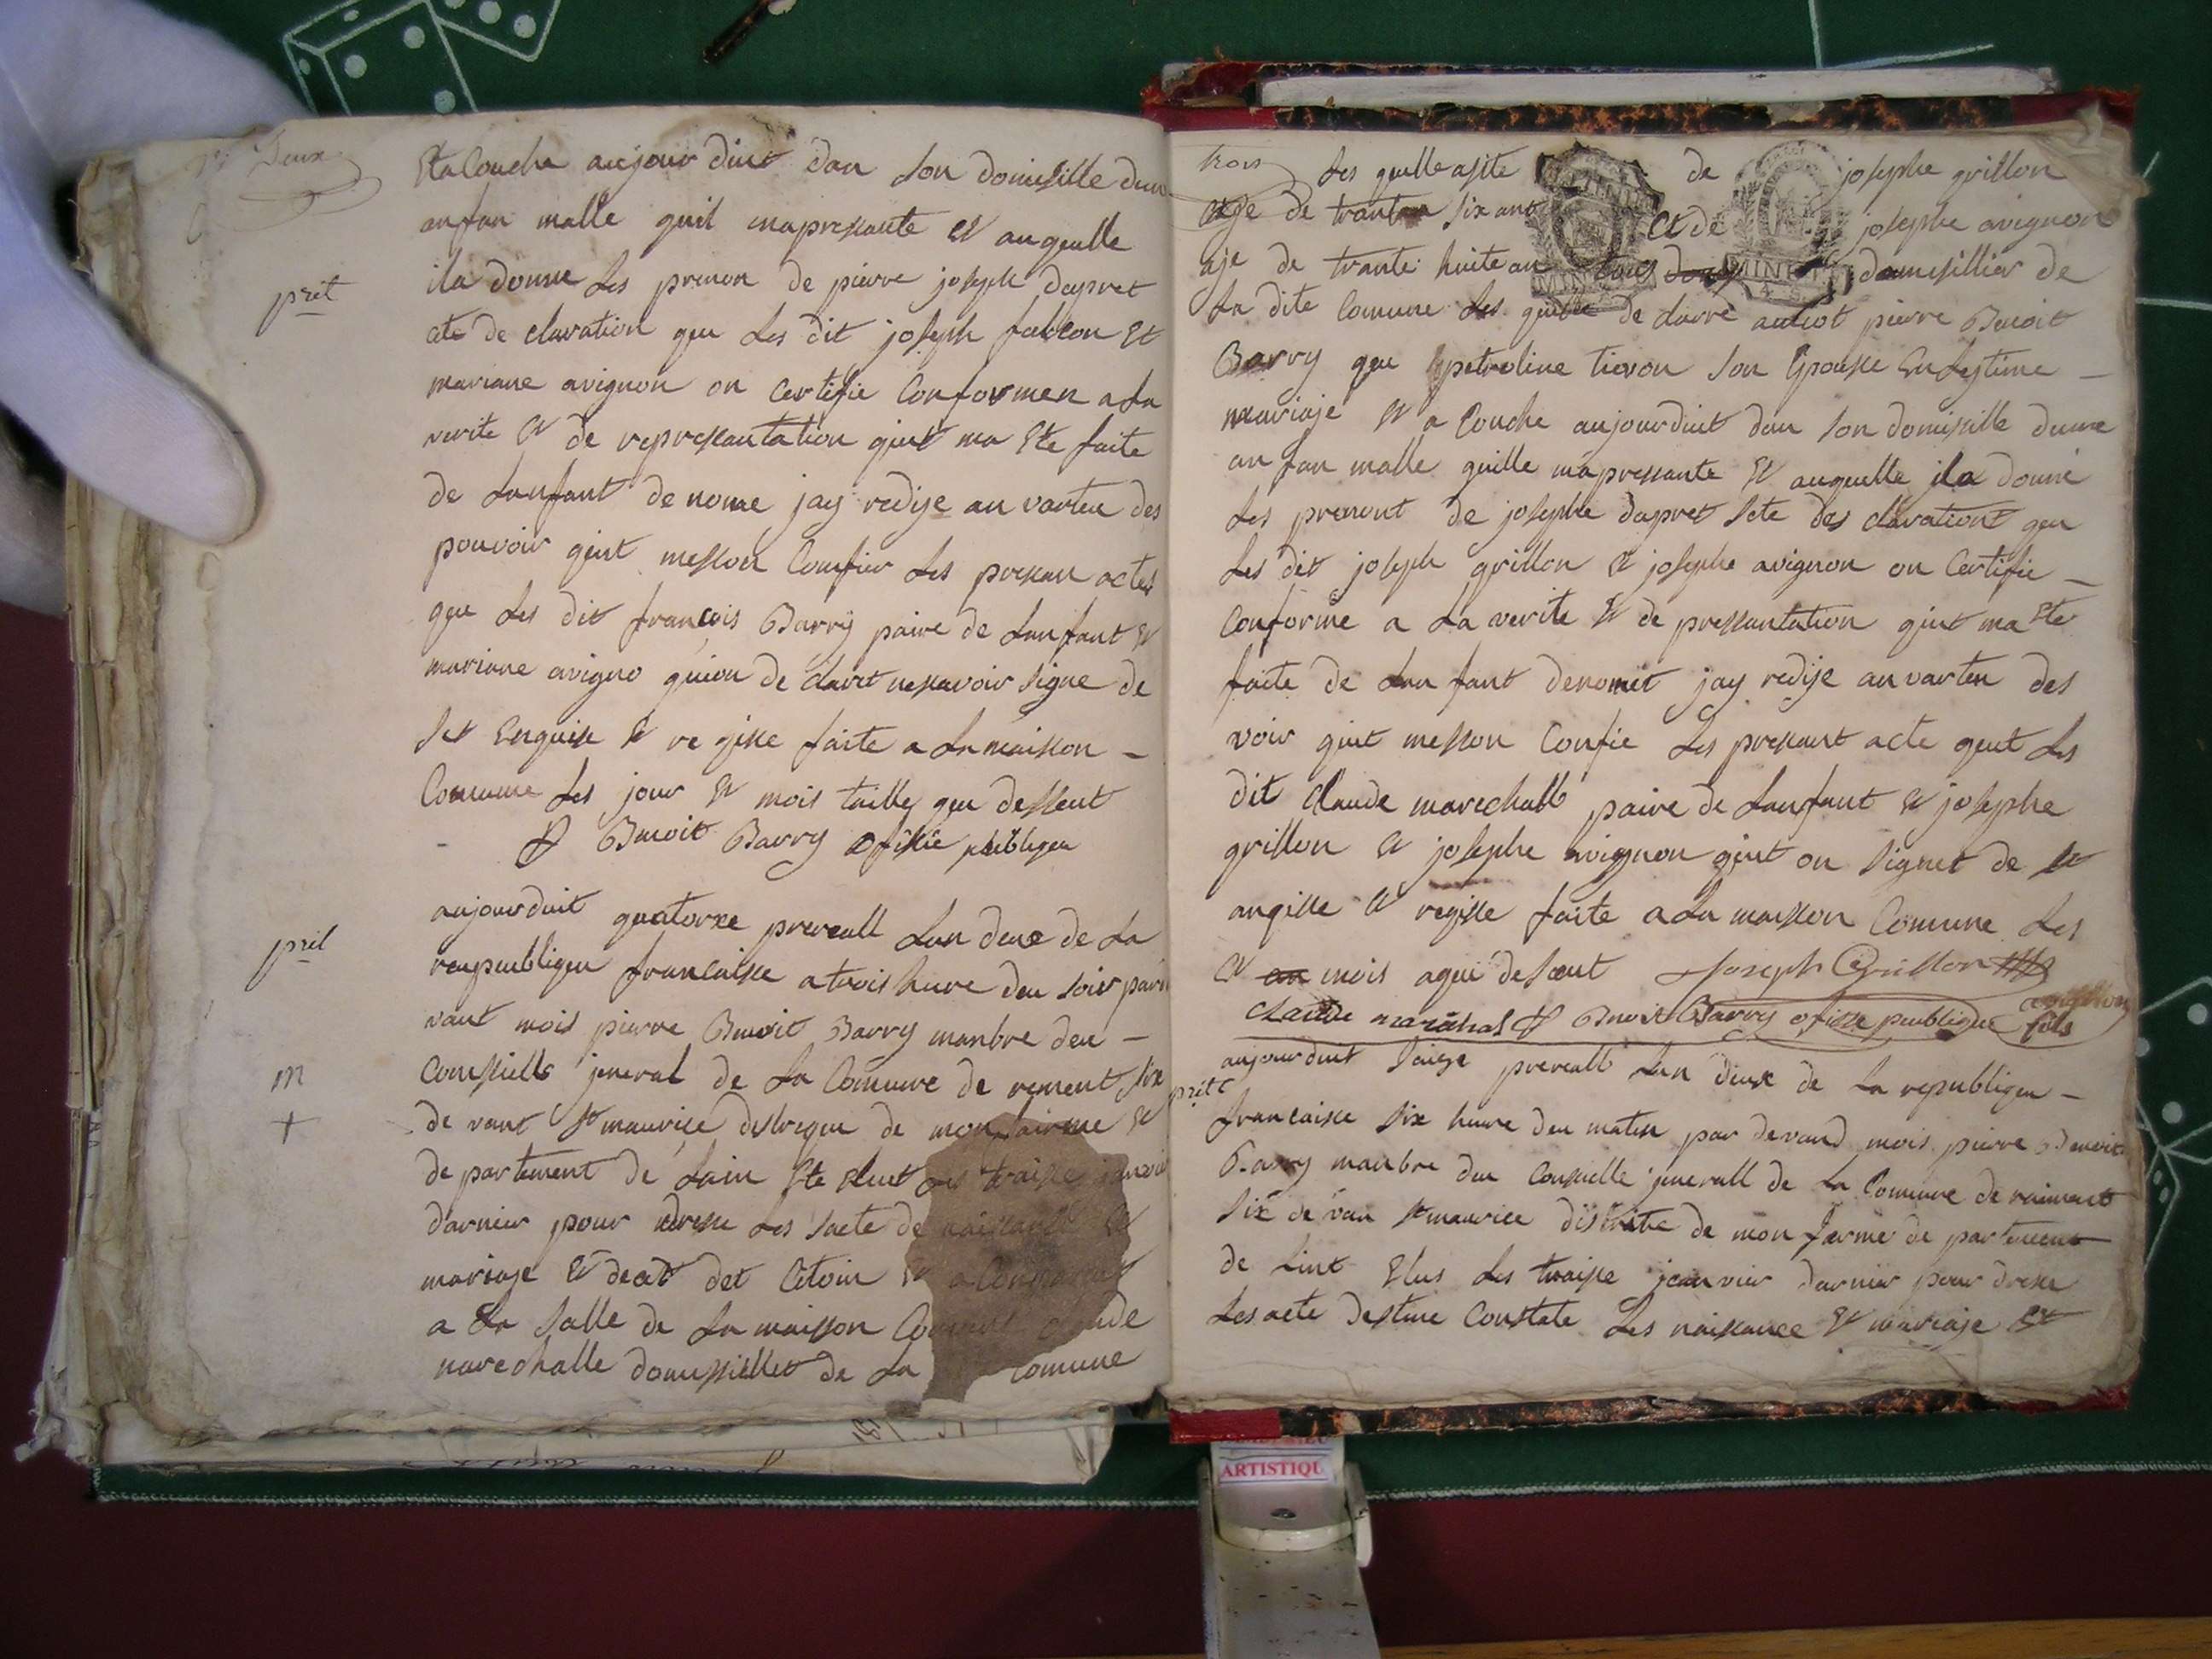 Deux
Etalouche aujour duit dan Son domisille dun
anfan malle quil mapressante Et auquelle
ila donne Les prenon de pierre joseph dapret
prit
ate de claration que Les dit joseph fablon Et
mariane avignon on Certifie Conformen a La
verite Et de represantation quit ma Ete faite
de Lanfant de nome jay redije an vartue des
pouvoir quit messon Confier Les pressan actes
que Les dit francois Barry paire de Lanfant Et
mariane avigno quion de claret nessavoir Signe de
Set Enquise Et re gisse faite a La maisson -
Comune Les jour Et mois taille que dessent
P Benoit Barry ofisie publique
aujourduit quatorze prereall Lan deux de La
pril
reupeublique francaisse a trois hure deu Soir par
vant mois pierre Benoit Barry manbre deu -
Conssielle jeneral de La Comuere de rement Six
m
de vant St maurice destreque de mon fairme Et
+
de partement de Lain Ete Eluet Les traisse janvie
darnier pour dresse Les Sacte de naissance Et
mariaje Et deat det Citoin Et
a La Salle de La maison Comune Claude
marechalle domissiellet de La Comune
trois
Les quelle asite de josephe grillon
aje de trantan Six ant Et de josephe avignon
aje de trante huite an tous deux domesillier de
La dite Comune Les quelle de clarre autiot pierre Benoit
Barry que petroline tievon Son Epousse En Lejtime -
mariaje Et a Couche aujourduit dan Son domisille dune
an fan malle quille mapressante Et auquelle ila donné
Les prenont de josephe dapret Sete des clarationt que
Les dit joseph grillon Et josephe avignon on Certifie -
Conforme a La verite Et de pressantation quit ma Ete
faite de Lan fant denomet jay redije an varteu des
voir quit messon Confie Les pressant acte quet Les
dit Claude marechall paire de Lanfant Et josephe
grillon Et josephe avignon quit on Signet de Et
anqisse Et regisse faite a La maisson Comune Les
Et an mois aqui desout Joseph Grillon
Claude maréchal P Benoit Barry ofisse peublique fils
aujourduit Saize prereall Lan deux de La republique -
prit
francaisse Six heure deu matin par devand mois pierre Benoit
Barry manbre deu Conssielle jenerall de La Comune de raiment
Six de van St maurice distrite de mon ferme de partement
de Lint Elus Les traisse jeanvier darnier pour dresse
Les acte destine Constate Les naissance Et mariaje Et
ARTISTIQU